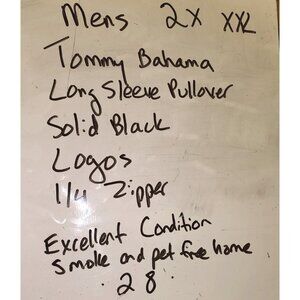 Mens 2X XXL
Tommy Bahama
Long Sleeve Pullover
Solid Black
Logos
1/4 Zipper
Excellent Condition
smoke and pet free home
28